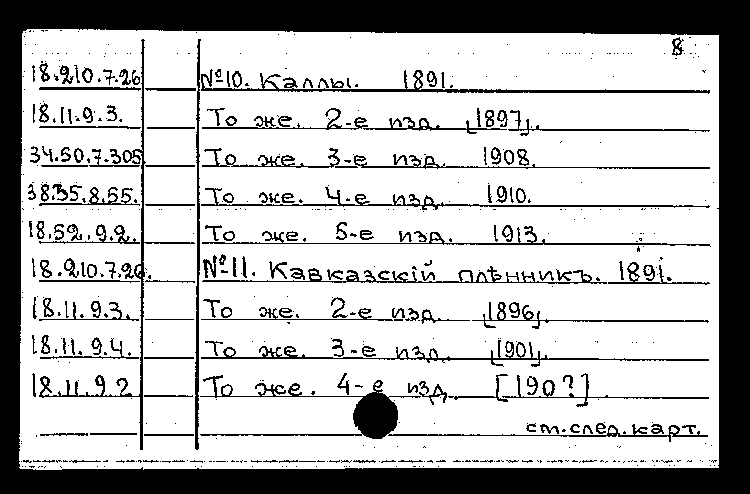 8
18.210.7.26 №10. Каллы. 1891.
18.11.9.3. То же. 2-е изд. [1897].
34.50.7.305 То же. 3-е изд. 1908.
38.35.8.55. То же. 4-е изд. 1910.
18.52.9.2. То же. 5-е изд. 1913.
18.210.7.26. №11. Кавказскій плѣнникъ. 1891.
18.11.9.3. То же. 2-е изд. [1896].
18.11.9.4. То же. 3-е изд. [1901].
18.11.9.2 То же. 4-е изд. [190?].
см.след.карт.